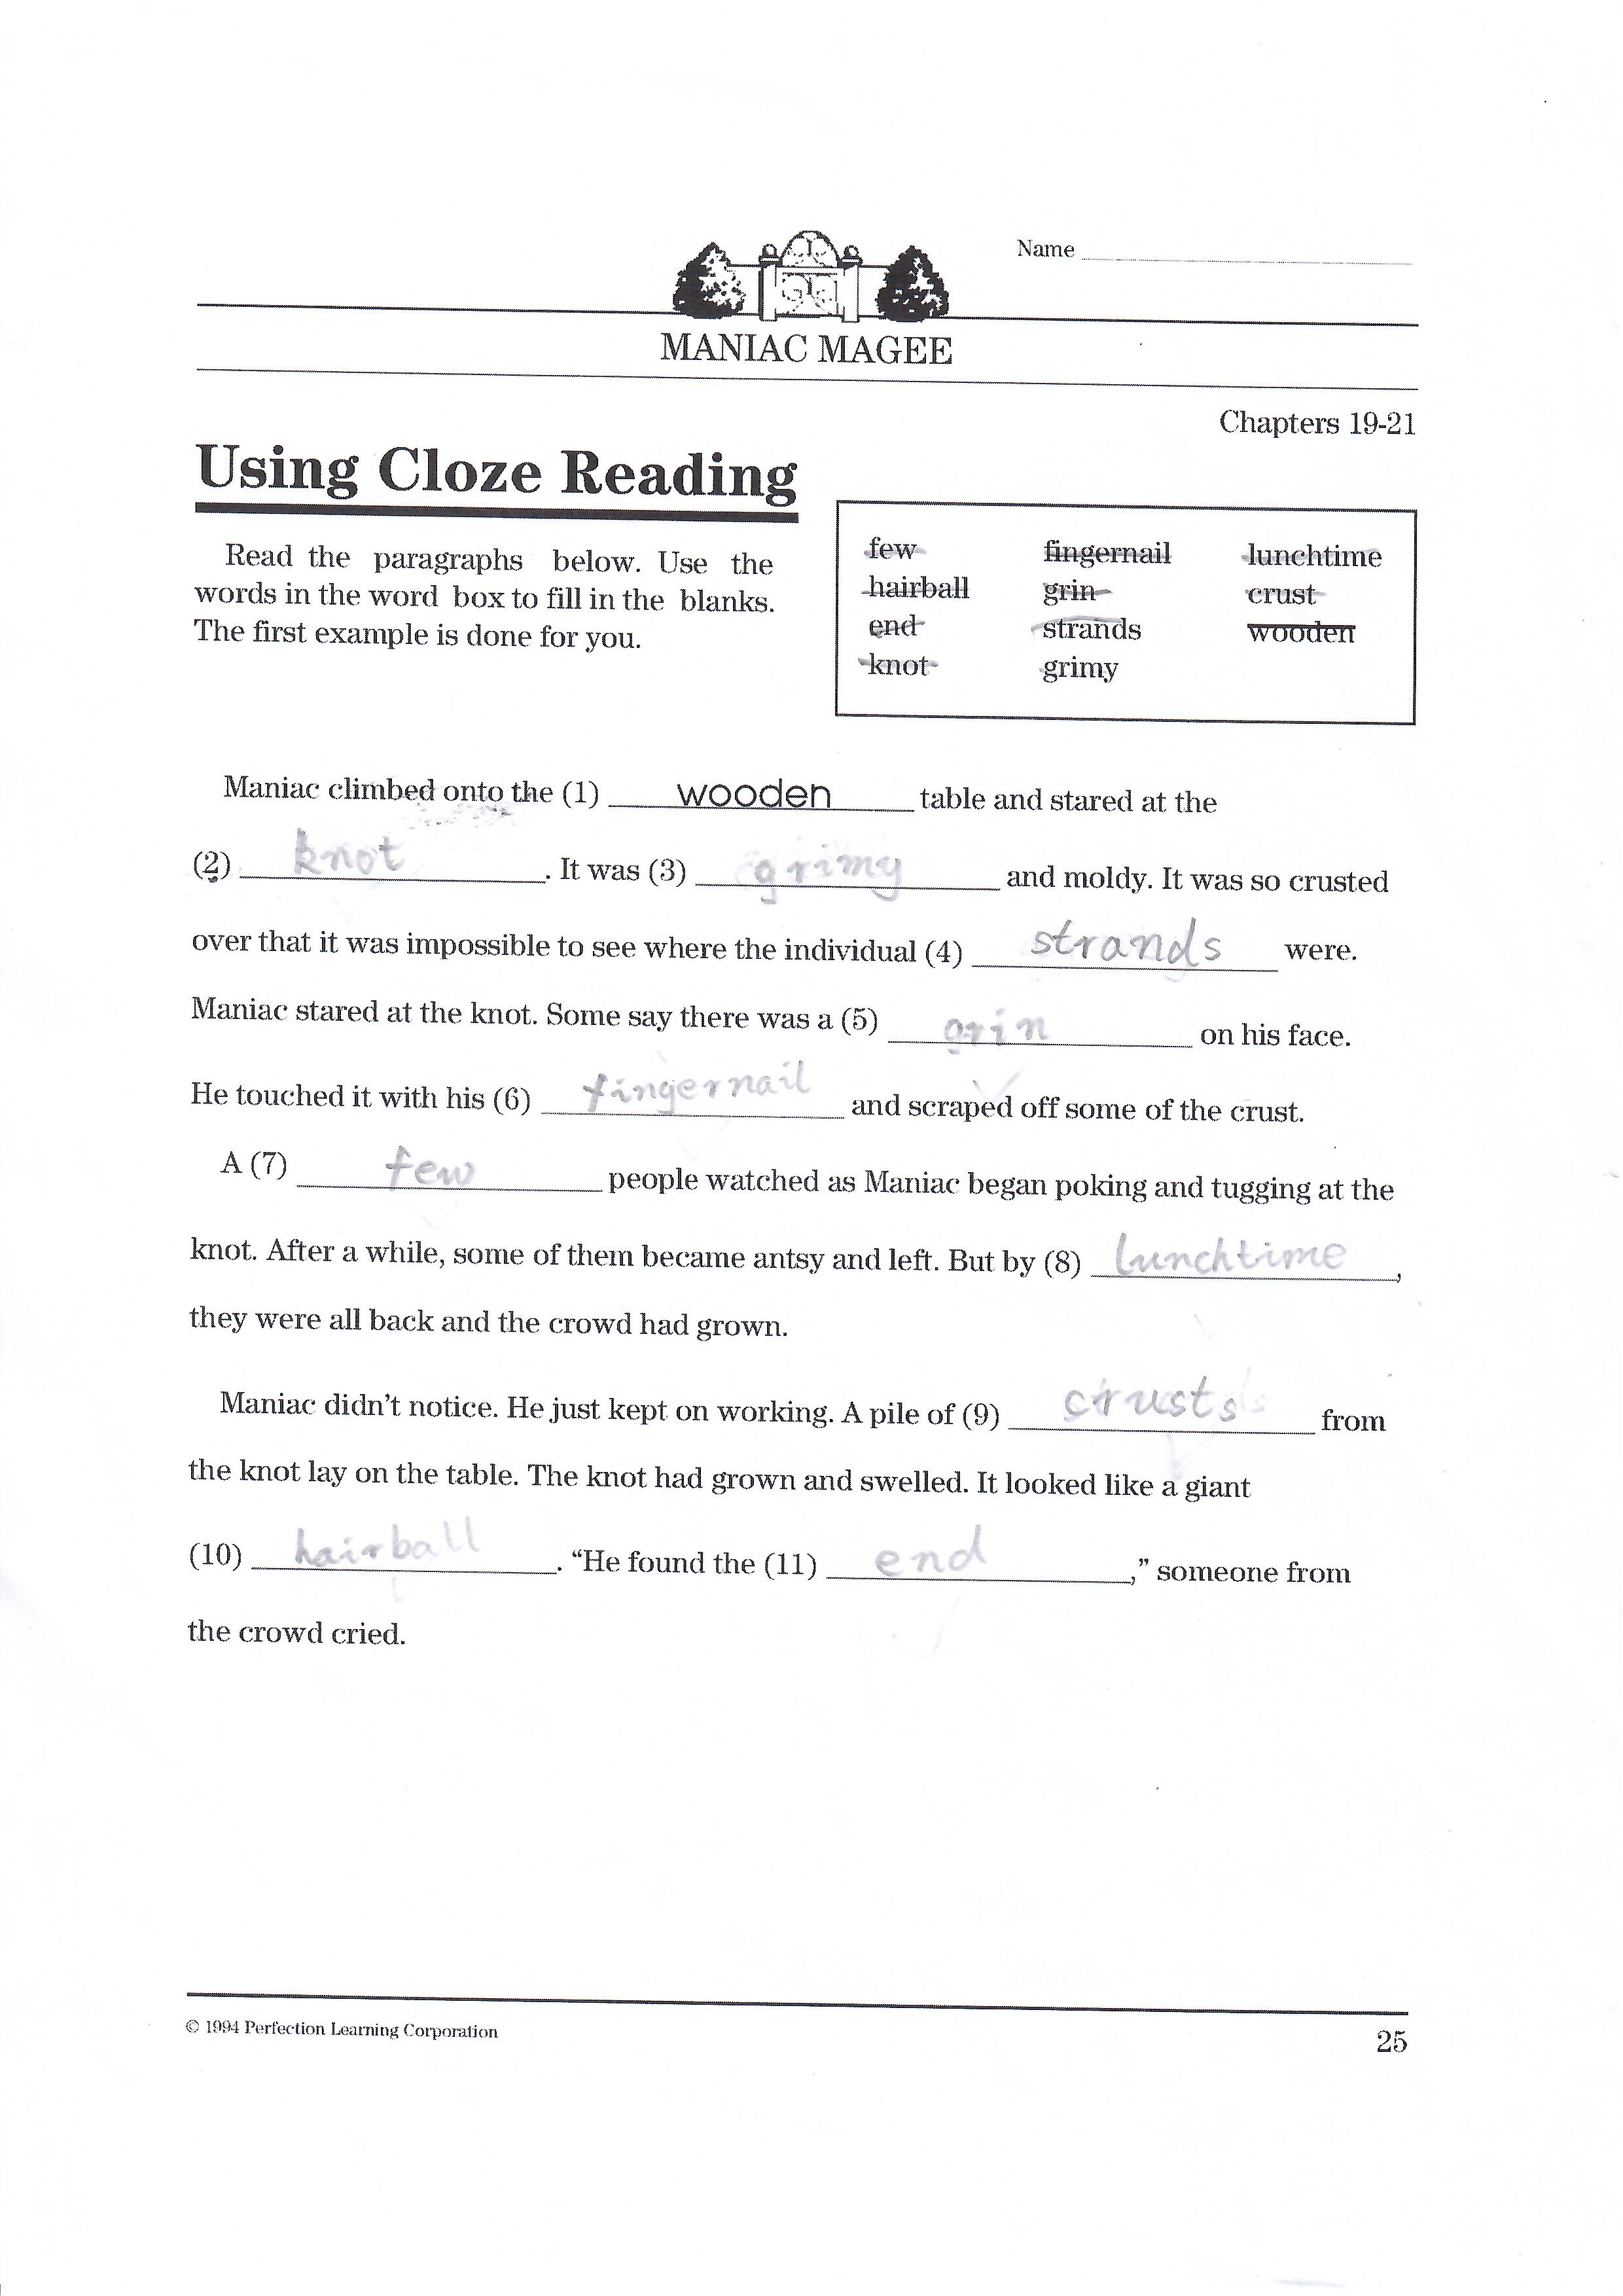 Name
MANIAC MAGEE
Chapters 19-21
Using Cloze Reading
Read the paragraphs below. Use the
words in the word box to fill in the blanks.
The first example is done for you.
few fingernail lunchtime
hairball grin crust
end strands wooden
knot grimy
Maniac climbed onto the (1) wooden table and stared at the
(2) knot. It was (3) grimy and moldy. It was so crusted
over that it was impossible to see where the individual (4) strands were.
Maniac stared at the knot. Some say there was a (5) grin on his face.
He touched it with his (6) fingernail and scraped off some of the crust.
A (7) few people watched as Maniac began poking and tugging at the
knot. After a while, some of them became antsy and left. But by (8) lunchtime,
they were all back and the crowd had grown.
Maniac didn't notice. He just kept on working. A pile of (9) crusts from
the knot lay on the table. The knot had grown and swelled. It looked like a giant
(10) hairball. “He found the (11) end,” someone from
the crowd cried.
© 1994 Perfection Learning Corporation
25